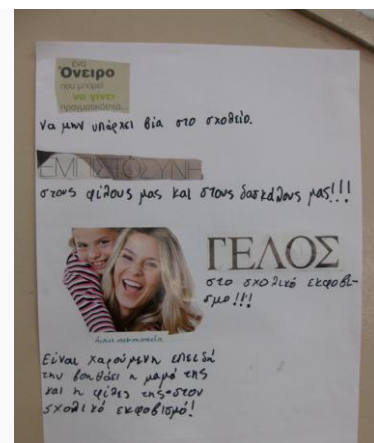 ένα
Όνειρο
που μπορεί
να γίνει
πραγματικότητα...
να μην υπάρχει βία στο σχολείο.
ΕΜΠΙΣΤΟΣΥΝΗ
στους φίλους μας και στους δασκάλους μας!!!
ΓΕΛΟΣ
στο σχολικό εκφοβι-
σμο!!!
Είναι χαρούμενη επειδή
την βοηθάει η μαμά της
και η φίλες της στον
σχολικό εκφοβισμό!